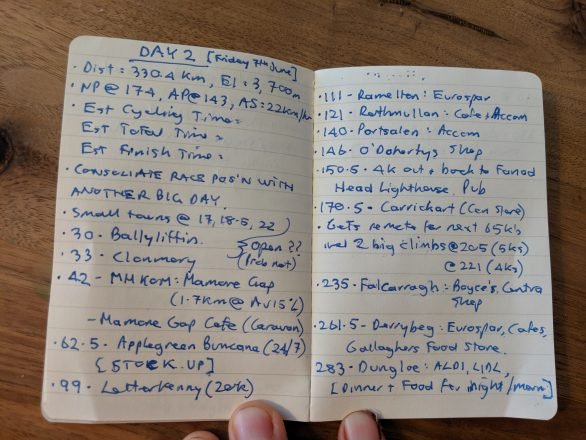 DAY 2 [Friday 7th June]
• Dist: 330.4 km, El: 3,700m
• NP @ 174, AP @ 143, AS: 22km/hr
• Est Cycling Time:
Est Total Time:
Est Finish Time:
• CONSOLIATE RACE POS'N WITH
ANOTHER BIG DAY.
• Small towns @ 17, 18.5, 22
• 30 • Ballyliffin. } open ??
• 33 • Clonmany (Prob not)
• 42 - MH KOM: Mamore Gap
(1.7km @ AV 15%)
- Mamore Gap Cafe (Caravan)
• 62.5 • Applegreen Buncana (24/7)
[STOCK UP]
• 99 • Letterkenny (20k)
• 111 - Ramelton: Eurospar
• 121 - Rathmullan: Cafe + Accom
• 140 - Portsalen: Accom
• 146 - O'Dohertys Shop
• 150.5 - 4k out + back to Fanad
Head Lighthouse. Pub
• 170.5 - Carrickart (Cen Store)
• Gets remote for next 65kb
incl 2 big climbs @ 205 (5ks)
@ 221 (4ks)
• 235 - Falcarragh: Boyce's, Centra
Shop
• 261.5 - Derrybeg: Eurospar, Cafes,
Gallaghers Food Store.
283 - Dungloe: ALDI, LIDL,
[Dinner + Food for night/morn]